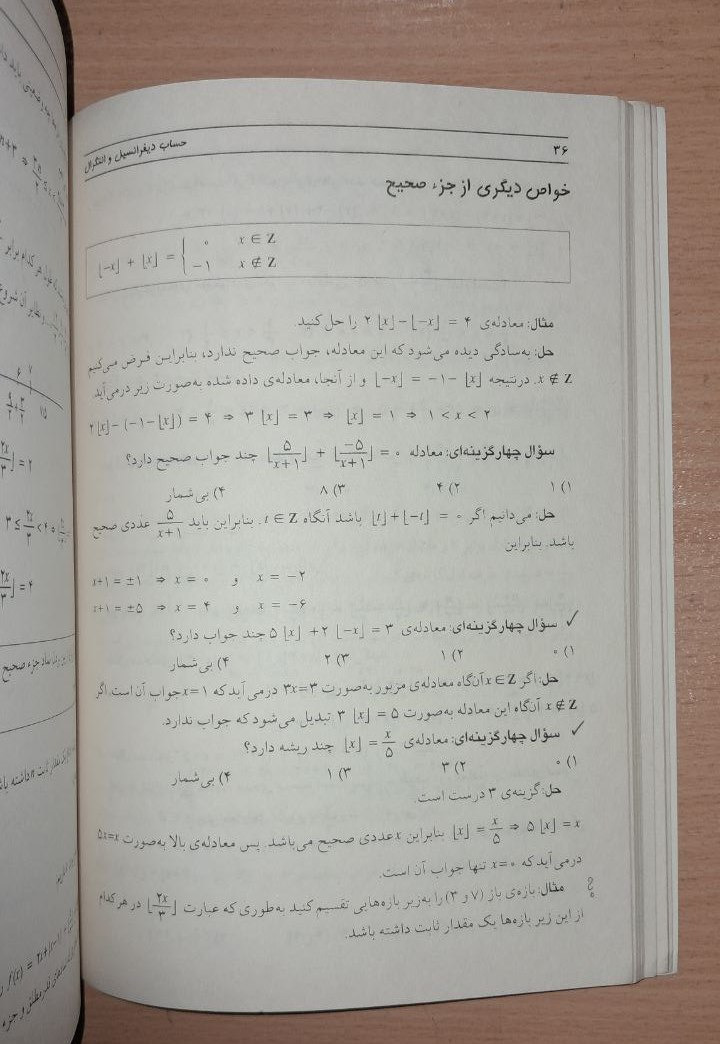 ۳۶
حساب دیفرانسیل و انتگرال
خواص دیگری از جزء صحیح
⌊x⌋ + ⌊−x⌋ = { ۰ x ∈ Z
−۱ x ∉ Z
مثال: معادله‌ی ۲⌊x⌋ − ⌊−x⌋ = ۴ را حل کنید.
حل: به‌سادگی دیده می‌شود که این معادله، جواب صحیح ندارد، بنابراین فرض می‌کنیم
x ∉ Z. درنتیجه ⌊−x⌋ = −۱ − ⌊x⌋ و از آنجا، معادله‌ی داده شده به‌صورت زیر درمی‌آید
۲⌊x⌋ − (−۱ − ⌊x⌋) = ۴ ⇒ ۳⌊x⌋ = ۳ ⇒ ⌊x⌋ = ۱ ⇒ ۱ < x < ۲
سؤال چهارگزینه‌ای: معادله ⌊۵/(x+۱)⌋ + ⌊−۵/(x+۱)⌋ = ۰ چند جواب صحیح دارد؟
۱) ۱ ۲) ۴ ۳) ۸ ۴) بی‌شمار
حل: می‌دانیم اگر ⌊t⌋ + ⌊−t⌋ = ۰ باشد آنگاه t ∈ Z. بنابراین باید ۵/(x+۱) عددی صحیح
باشد. بنابراین
x+۱ = ±۱ ⇒ x = ۰ و x = −۲
x+۱ = ±۵ ⇒ x = ۴ و x = −۶
✓ سؤال چهارگزینه‌ای: معادله‌ی ۵⌊x⌋ + ۲⌊−x⌋ = ۳ چند جواب دارد؟
۱) ۰ ۲) ۱ ۳) ۲ ۴) بی‌شمار
حل: اگر x ∈ Z آنگاه معادله‌ی مزبور به‌صورت ۳x=۳ درمی آید که x=۱ جواب آن است. اگر
x ∉ Z آنگاه این معادله به‌صورت ۳⌊x⌋ = ۵ تبدیل می‌شود که جواب ندارد.
✓ سؤال چهارگزینه‌ای: معادله‌ی ⌊x⌋ = x/۵ چند ریشه دارد؟
۱) ۰ ۲) ۳ ۳) ۱ ۴) بی‌شمار
حل: گزینه‌ی ۳ درست است.
⌊x⌋ = x/۵ ⇒ ۵⌊x⌋ = x بنابراین x عددی صحیح می‌باشد. پس معادله‌ی بالا به‌صورت ۵x=x
درمی‌آید که x=۰ تنها جواب آن است.
مثال: بازه‌ی باز (۷ و ۳) را به‌زیر بازه‌هایی تقسیم کنید به‌طوری که عبارت ⌊۲x/۳⌋ در هر کدام
از این زیر بازه‌ها یک مقدار ثابت داشته باشد.